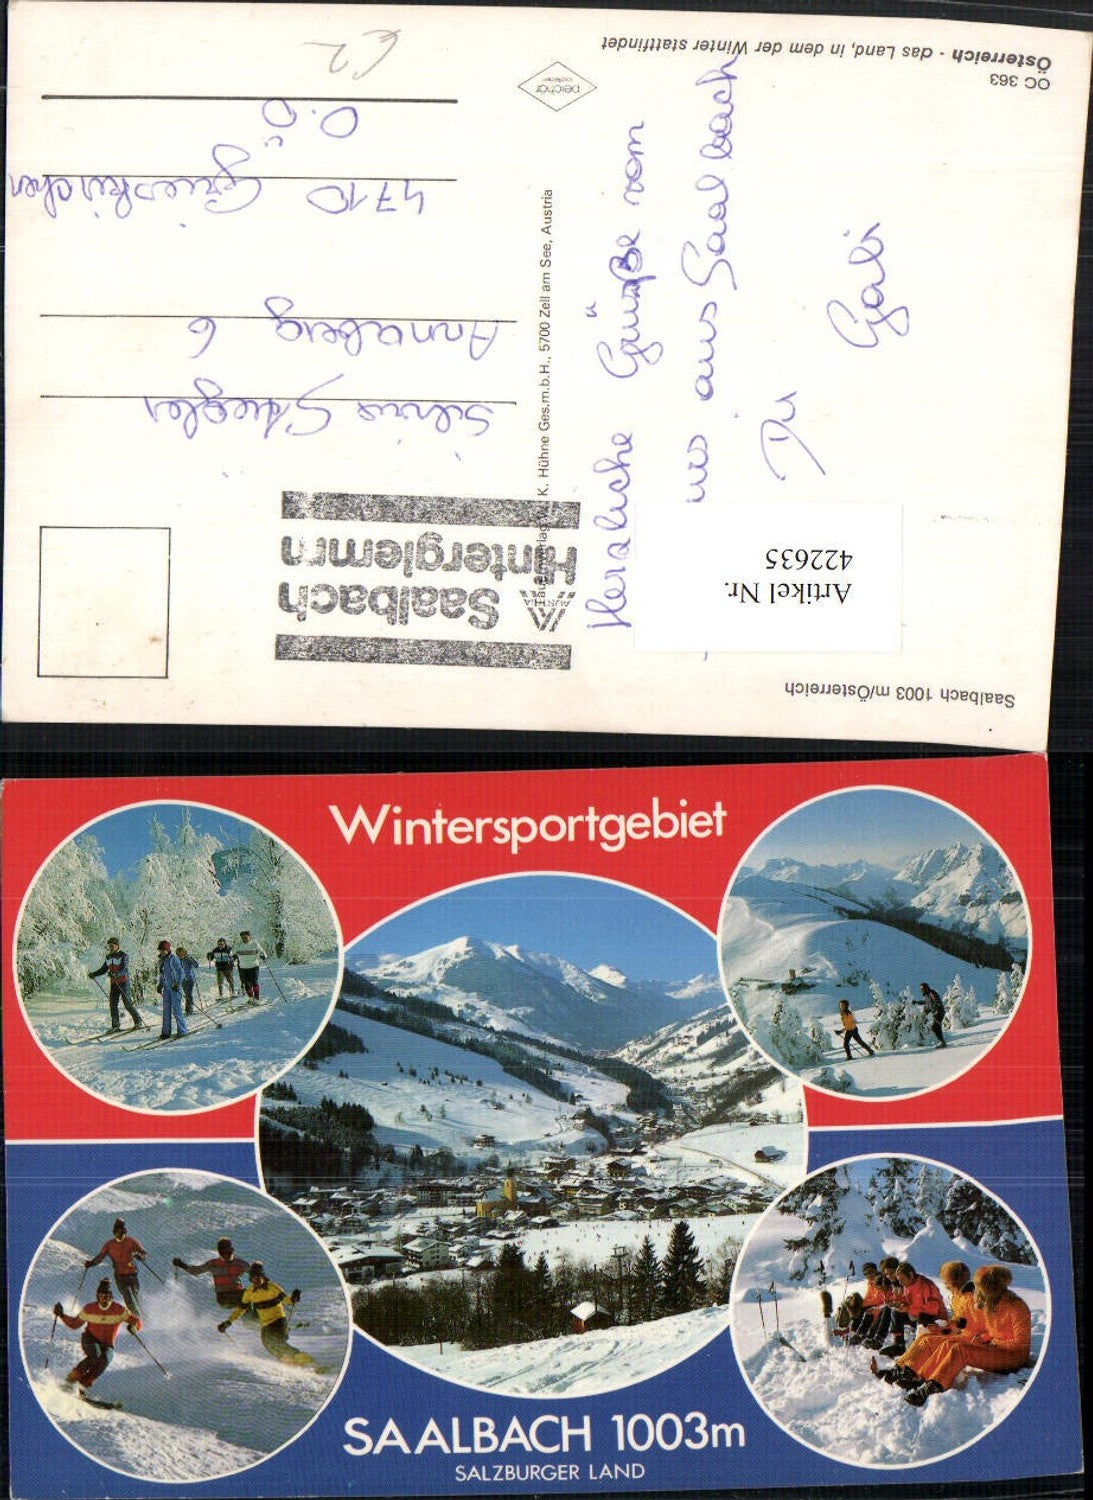 Saalbach 1003 m/Österreich
Artikel Nr.
422635
Saalbach
Hinterglemm
AUSTRIA
Herzliche Grüße vom
aus Saalbach
Gabi
Silvia
Annaberg 6
4710 Grieskirchen
O.Ö.
€2
K. Hühne Ges.m.b.H., 5700 Zell am See, Austria
peichär
ÖC 363
Österreich - das Land, in dem der Winter stattfindet
Wintersportgebiet
SAALBACH 1003m
SALZBURGER LAND